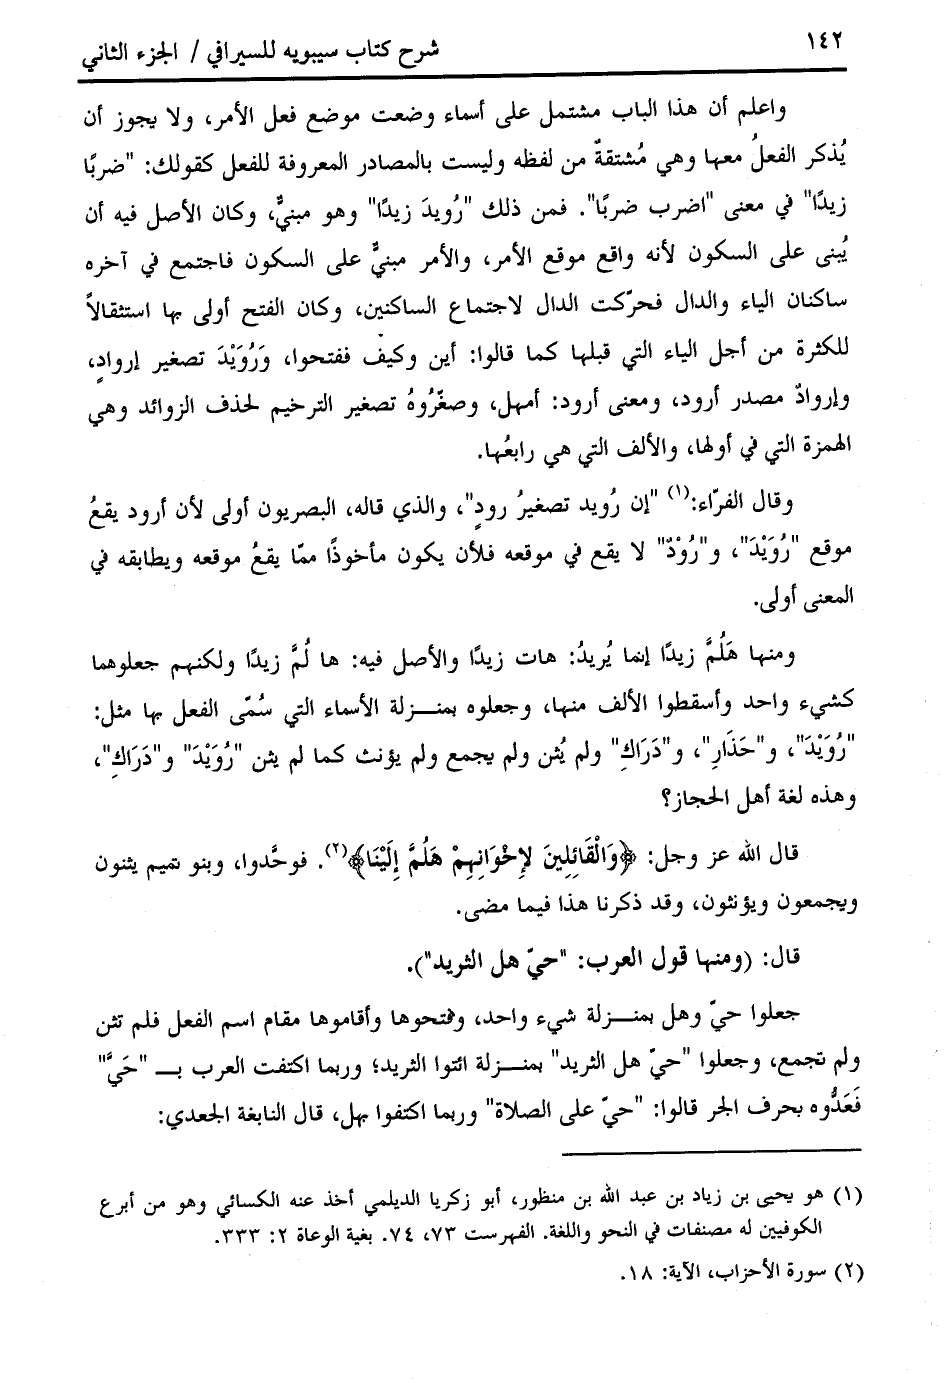 ١٤٢
شرح كتاب سيبويه للسيرافي / الجزء الثاني
واعلم أن هذا الباب مشتمل على أسماء وضعت موضع فعل الأمر، ولا يجوز أن
يُذكر الفعلُ معها وهي مُشتقةٌ من لفظه وليست بالمصادر المعروفة للفعل كقولك: "ضربًا
زيدًا" في معنى "اضرب ضربًا". فمن ذلك "رُويدَ زيدًا" وهو مبنيٌّ، وكان الأصل فيه أن
يُبنى على السكون لأنه واقع موقع الأمر، والأمر مبنيٌّ على السكون فاجتمع في آخره
ساكنان الياء والدال فحرّكت الدال لاجتماع الساكنين، وكان الفتح أولى بها استثقالاً
للكثرة من أجل الياء التي قبلها كما قالوا: أين وكيف ففتحوا، وَرُوَيْدَ تصغير إروادٍ،
وإروادٌ مصدر أرود، ومعنى أرود: أمهل، وصغّرُوهُ تصغير الترخيم لحذف الزوائد وهي
الهمزة التي في أولها، والألف التي هي رابعُها.
وقال الفرّاء:(١) "إن رُويد تصغيرُ رودٍ"، والذي قاله، البصريون أولى لأن أرود يقعُ
موقع "رُوَيْدَ"، و"رُوْدٌ" لا يقع في موقعه فلأن يكون مأخوذًا ممّا يقعُ موقعه ويطابقه في
المعنى أولى.
ومنها هَلُمَّ زيدًا إنما يُريدُ: هات زيدًا والأصل فيه: ها لُمَّ زيدًا ولكنهم جعلوهما
كشيء واحد وأسقطوا الألف منها، وجعلوه بمنـزلة الأسماء التي سُمّى الفعل بها مثل:
"رُوَيْدَ"، و"حَذَارِ"، و"دَرَاكِ" ولم يُثن ولم يجمع ولم يؤنث كما لم يثن "رُوَيْدَ" و"دَرَاكِ"،
وهذه لغة أهل الحجاز؟
قال الله عز وجل: ﴿وَالْقَائِلِينَ لإِخْوَانِهِمْ هَلُمَّ إِلَيْنَا﴾(٢). فوحَّدوا، وبنو تميم يثنون
ويجمعون ويؤنثون، وقد ذكرنا هذا فيما مضى.
قال: (ومنها قول العرب: "حيّ هل الثريد").
جعلوا حيّ وهل بمنـزلة شيء واحد، وفتحوها وأقاموها مقام اسم الفعل فلم تثن
ولم تجمع، وجعلوا "حيّ هل الثريد" بمنـزلة ائتوا الثريد؛ وربما اكتفت العرب بـ "حَيَّ"
فَعَدُّوه بحرف الجر قالوا: "حيّ على الصلاة" وربما اكتفوا بهل، قال النابغة الجعدي:
(١) هو يحيى بن زياد بن عبد الله بن منظور، أبو زكريا الديلمي أخذ عنه الكسائي وهو من أبرع
الكوفيين له مصنفات في النحو واللغة. الفهرست ٧٣، ٧٤. بغية الوعاة ٢: ٣٣٣.
(٢) سورة الأحزاب، الآية: ١٨.